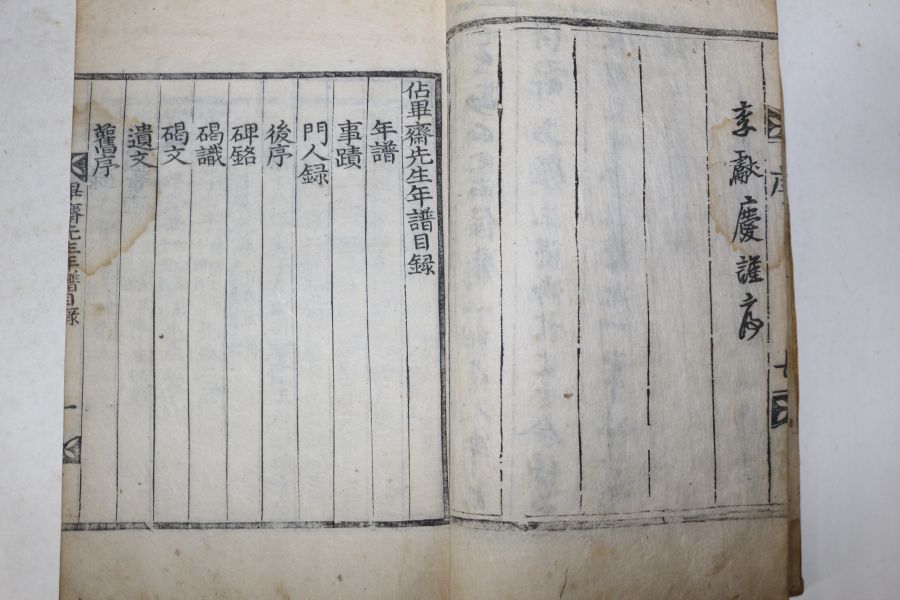 序
李獻慶謹序
佔畢齋先生年譜目録
年譜
事蹟
門人録
後序
碑銘
碣識
碣文
遺文
舊序
畢齋先生年譜目録
一